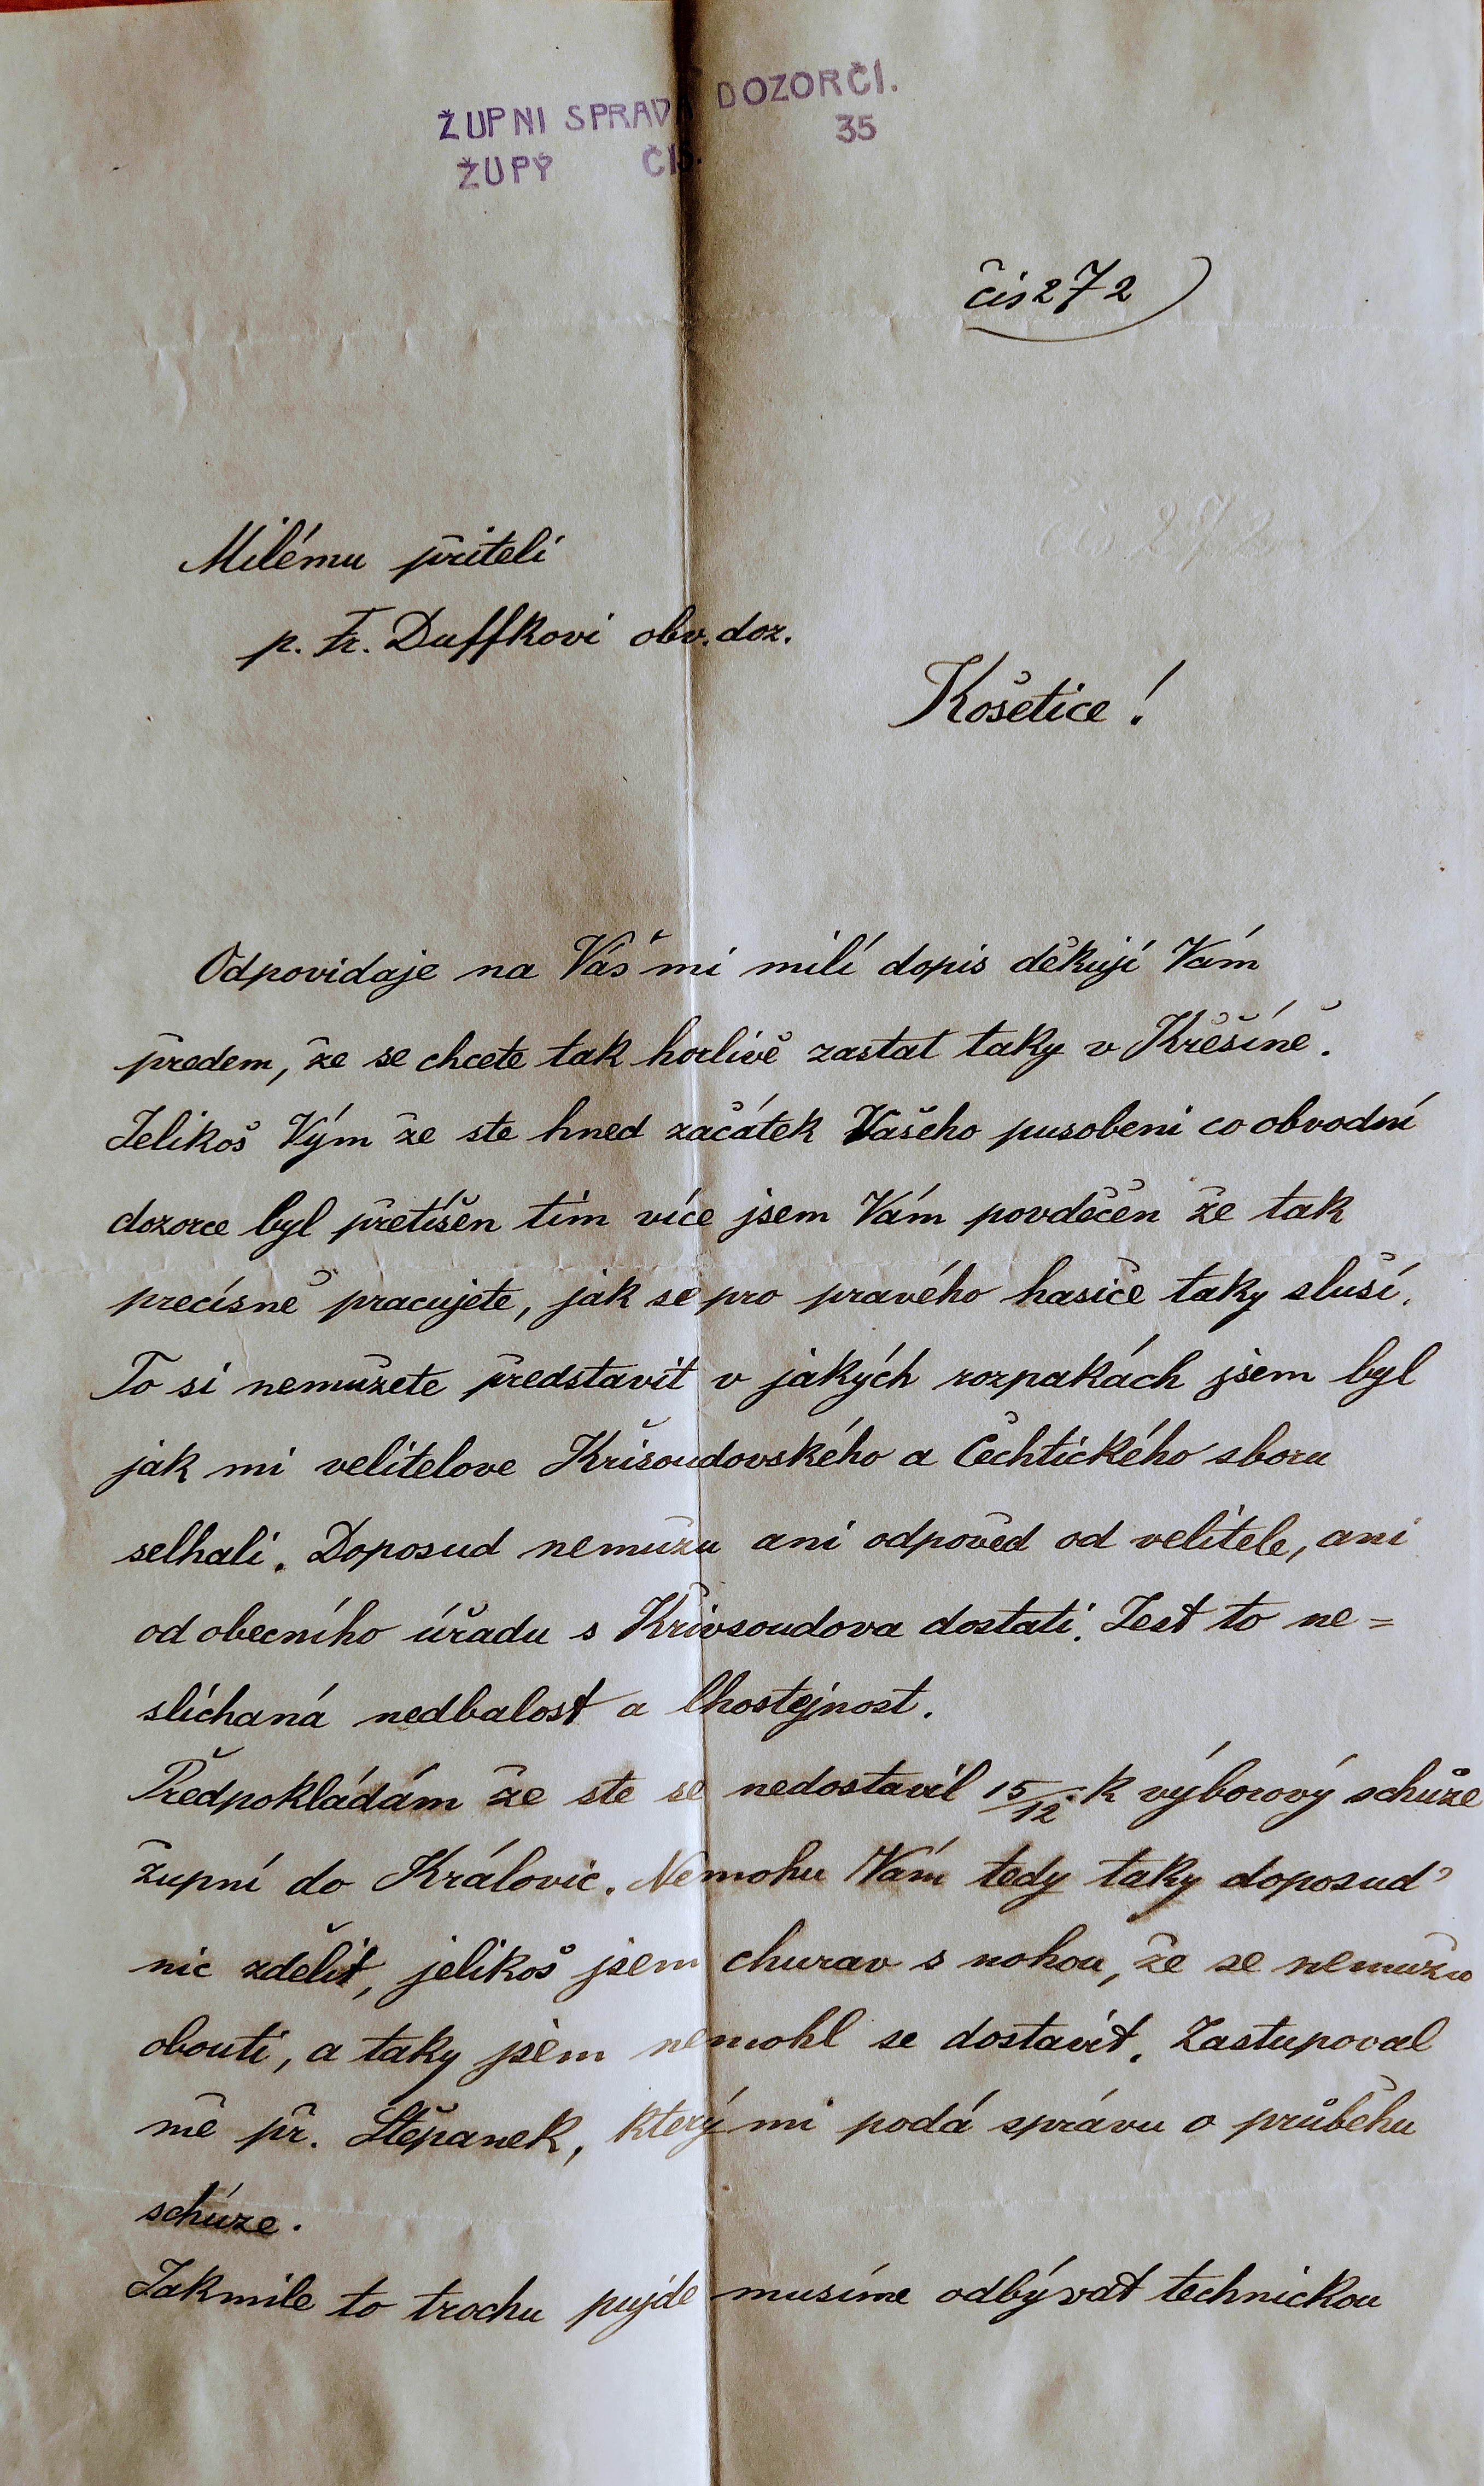 ŽUPNI SPRAVA DOZORČI.
ŽUPY ČIS. 35
čis 272
Milému příteli
p. Fr. Duffkovi obv. doz.
Košetice!
Odpovidaje na Váš mi milí dopis děkuji Vám
předem, že se chcete tak horlivě zastat taky v Křěšíně.
Jelikoš Vým že ste hned začátek Vašeho pusobeni co obvodní
dozorce byl přetíšěn tím více jsem Vám povděčěn že tak
precísně pracujete, jak se pro pravého hasiče taky sluší.
To si nemužete představit v jakých rozpakách jsem byl
jak mi velitelove Křisoudovského a Čechtického sboru
selhali. Doposud nemužu ani odpověd od velitele, ani
od obecního úřadu s Křivsoudova dostati. Jest to ne=
slíchaná nedbalost a lhostejnost.
Předpokládám že ste se nedostavil 15/12. k výborový schůze
župní do Královic. Nemohu Vám tedy taky doposud
nic zdělit, jelikoš jsem churav s nohou, že se nemužu
obouti, a taky jsem nemohl se dostavit. Zastupoval
mě př. Štěpanek, který mi podá správu o průběhu
schúze.
Jakmile to trochu pujde musíme odbývat technickou